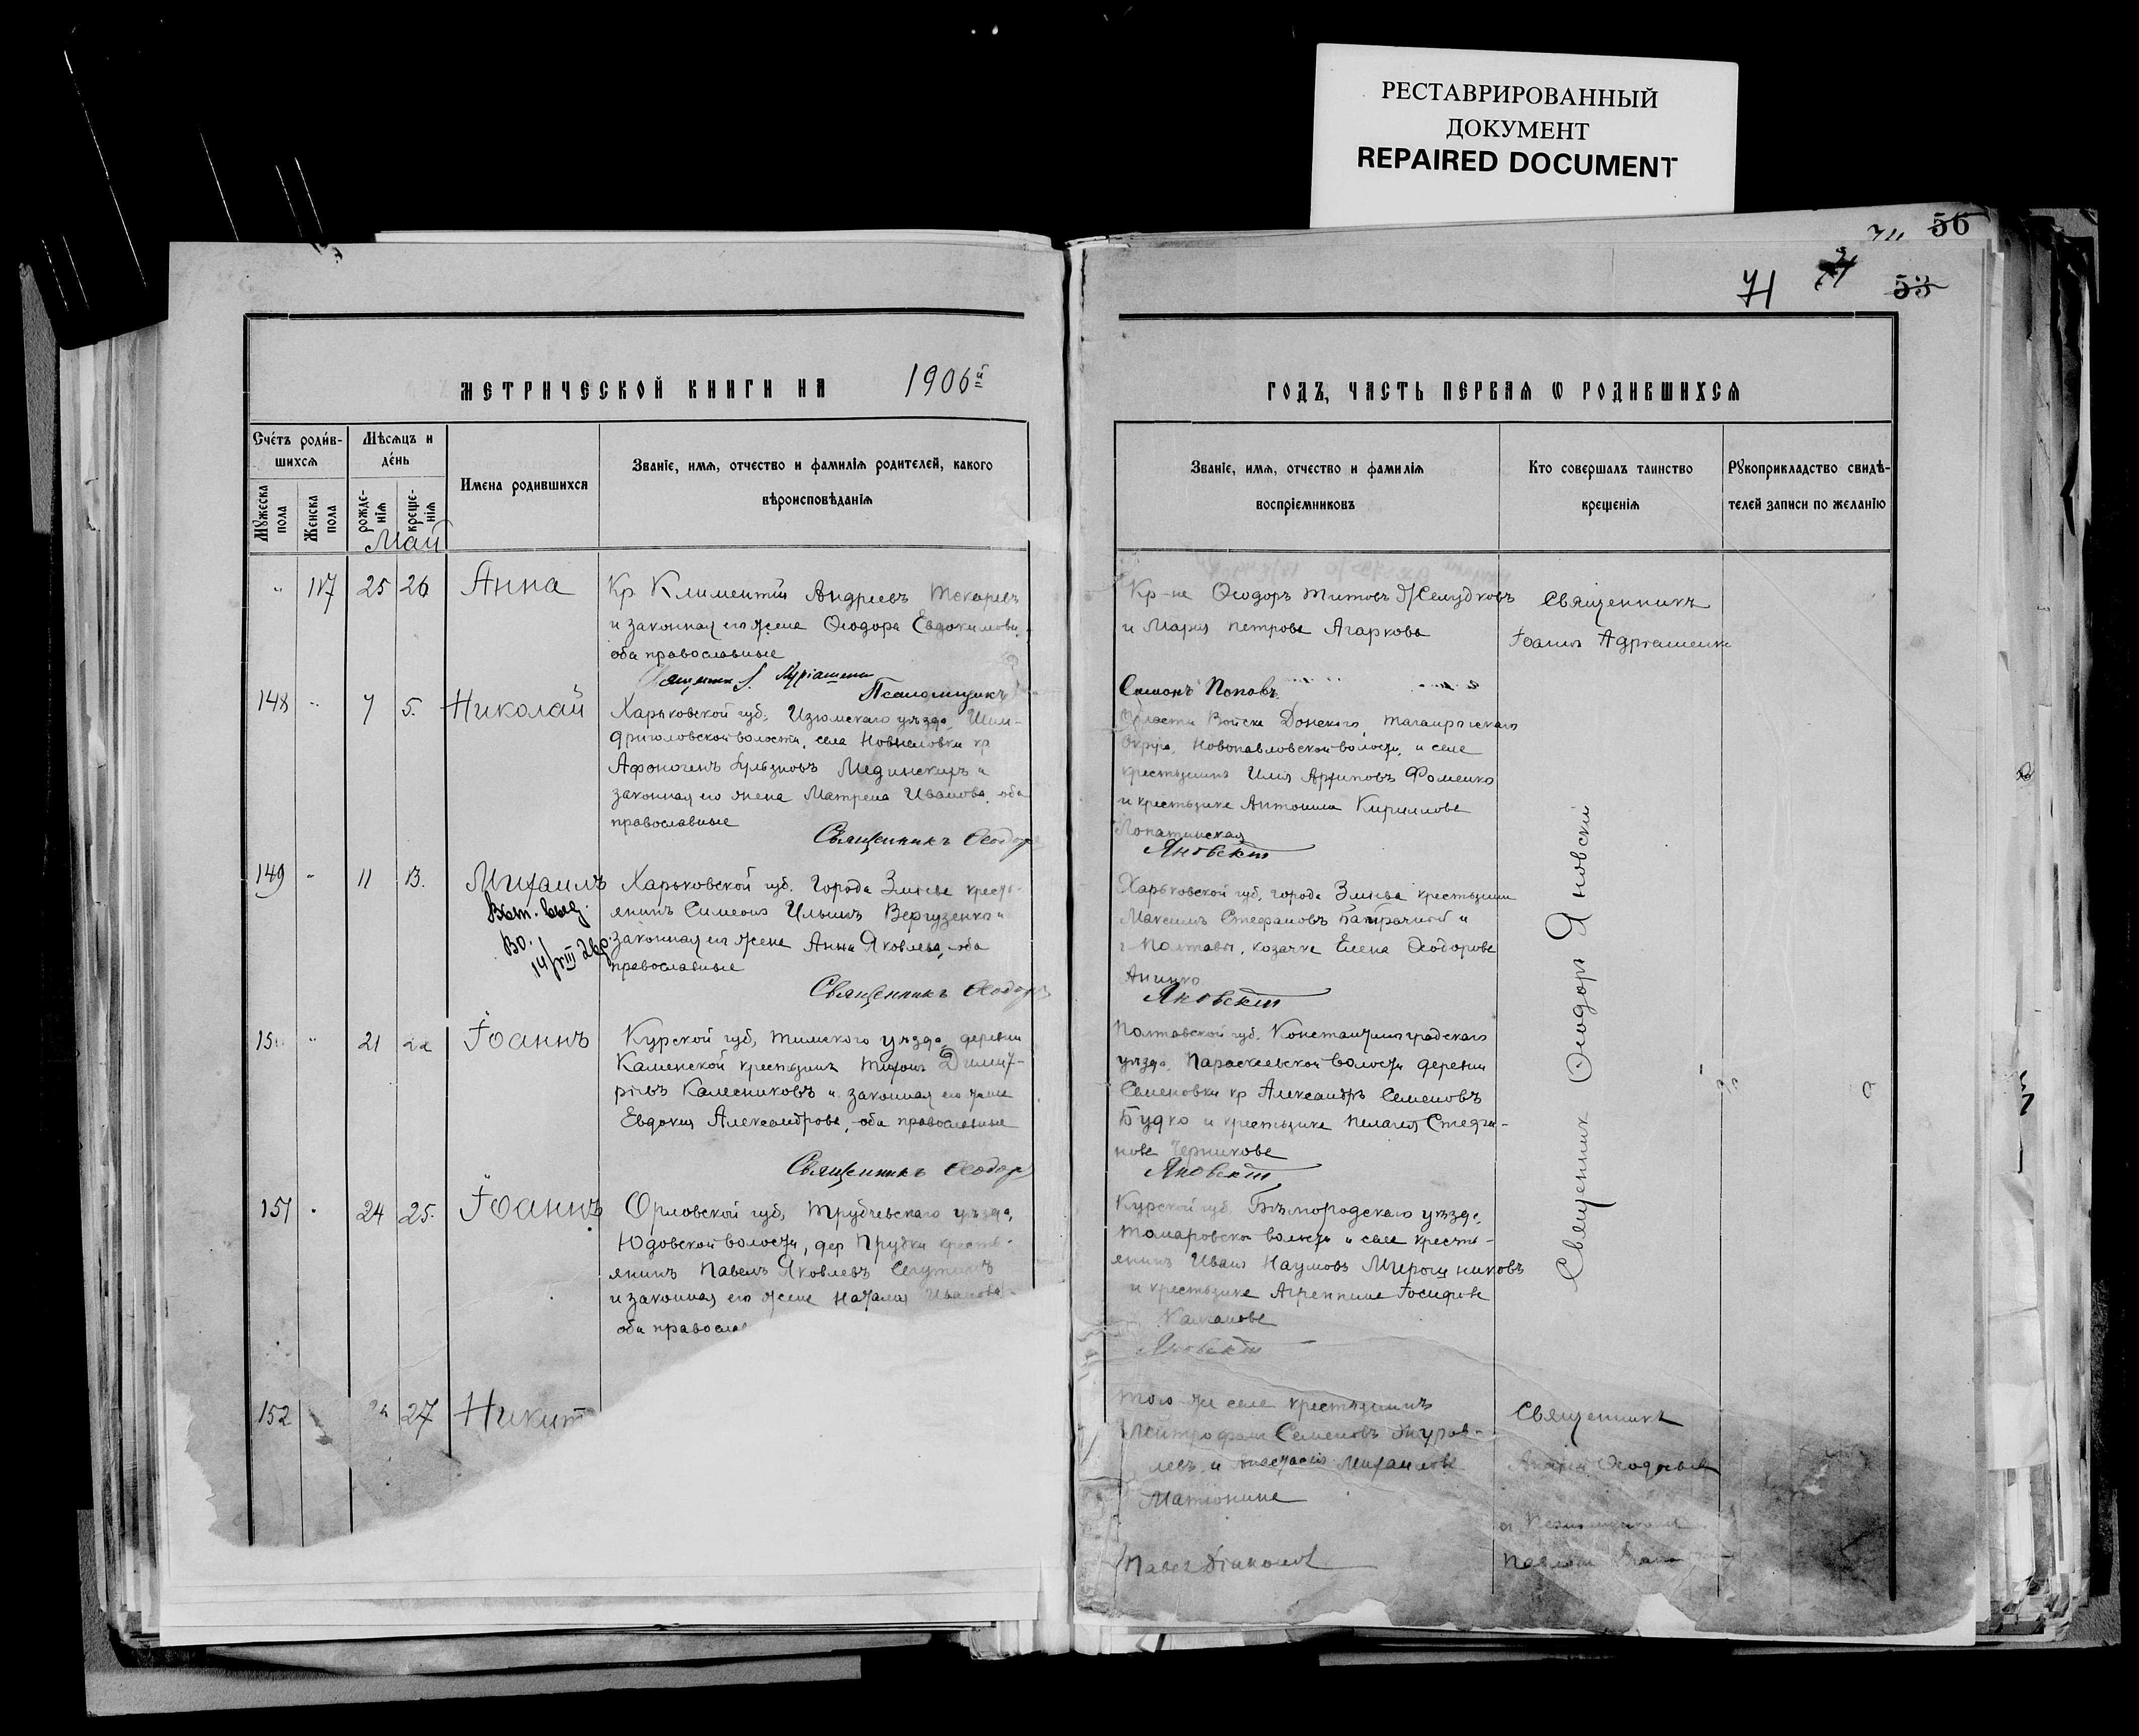 РЕСТАВРИРОВАННЫЙ
ДОКУМЕНТ
REPAIRED DOCUMENT
56
71
53
МЕТРИЧЕСКОЙ КНИГИ НА 1906й
ГОДЪ, ЧАСТЬ ПЕРВАЯ Ѡ РОДИВШИХСЯ
Счетъ родив-
шихся
Мужеска
пола
Женска
пола
Мѣсяцъ и
день
рожде-
нія
креще-
нія
Имена родившихся
Званіе, имя, отчество и фамилія родителей, какого
вѣроисповѣданія
Званіе, имя, отчество и фамилія
воспріемниковъ
Кто совершалъ таинство
крещенія
Рукоприкладство свидѣ-
телей записи по желанію
Май
" 117 25 26 Анна
Кр Климентій Андреевъ Токаревъ
и законная его жена Ѳеодора Евдокимова
оба православные
Кр-не Ѳеодоръ Титовъ Желудковъ
и Марія Петрова Агаркова
Священникъ
Іоаннъ
Псаломщикъ
Симонъ Поповъ
148 " 7 5. Николай
Харьковской губ, Изюмскаго уѣзда, Шан-
дриголовской волости, села Новоселовки кр
Афоногенъ Мединскій и
законная его жена Матрена Иванова, оба
православные
Священникъ Ѳеодоръ
Области Войска Донского, Таганрогскаго
Округа, Новопавловской волости, и села
крестьянинъ Илія Архиповъ Фоменко
и крестьянка Антонина Кириллова
Лопатинская
Яновскій
149 " 11 13. Михаилъ
Харьковской губ. Города Зміева кресть-
янинъ Симеонъ Ильинъ Вергузенко и
законная его жена Анна Яковлева, оба
православные
Священникъ Ѳеодоръ
Выт. выд.
14/VIII
Харьковской губ, города Зміева крестьянинъ
Максимъ Стефановъ Батрачный и
г Полтавы, козачка Елена Ѳеодорова
Яновскій
15 " 21 22 Іоаннъ
Курской губ, Тимского уѣзда, деревни
Каменской крестьянинъ Тихонъ Димит-
ріевъ Калесниковъ и законная его жена
Евдокія Александрова, оба православные
Священникъ Ѳеодоръ
Полтавской губ. Константиноградскаго
уѣзда, Парасковеевской волости деревни
Семеновки кр Александръ Семеновъ
Будко и крестьянка Пелагея Стефа-
нова Черникова
Яновскій
Священникъ Ѳеодоръ Яновскій
151 " 24 25. Іоаннъ
Орловской губ, Трубчевскаго уѣзда,
Юдовской волости, дер Прудки кресть-
янинъ Павелъ Яковлевъ
и законная его жена Наталія Иванова
оба православ
Курской губ. Бѣлгородскаго уѣзда,
Томаровской волости и села кресть-
янинъ Иванъ Наумовъ Мирошниковъ
и крестьянка Агрепина Іосифова
Калканова
Яновскій
152 27 Никит
Того же села крестьянинъ
Митрофанъ Семеновъ Журав-
левъ и Анастасія Михаилова
Матюнина
Священникъ
Павелъ Діаконовъ